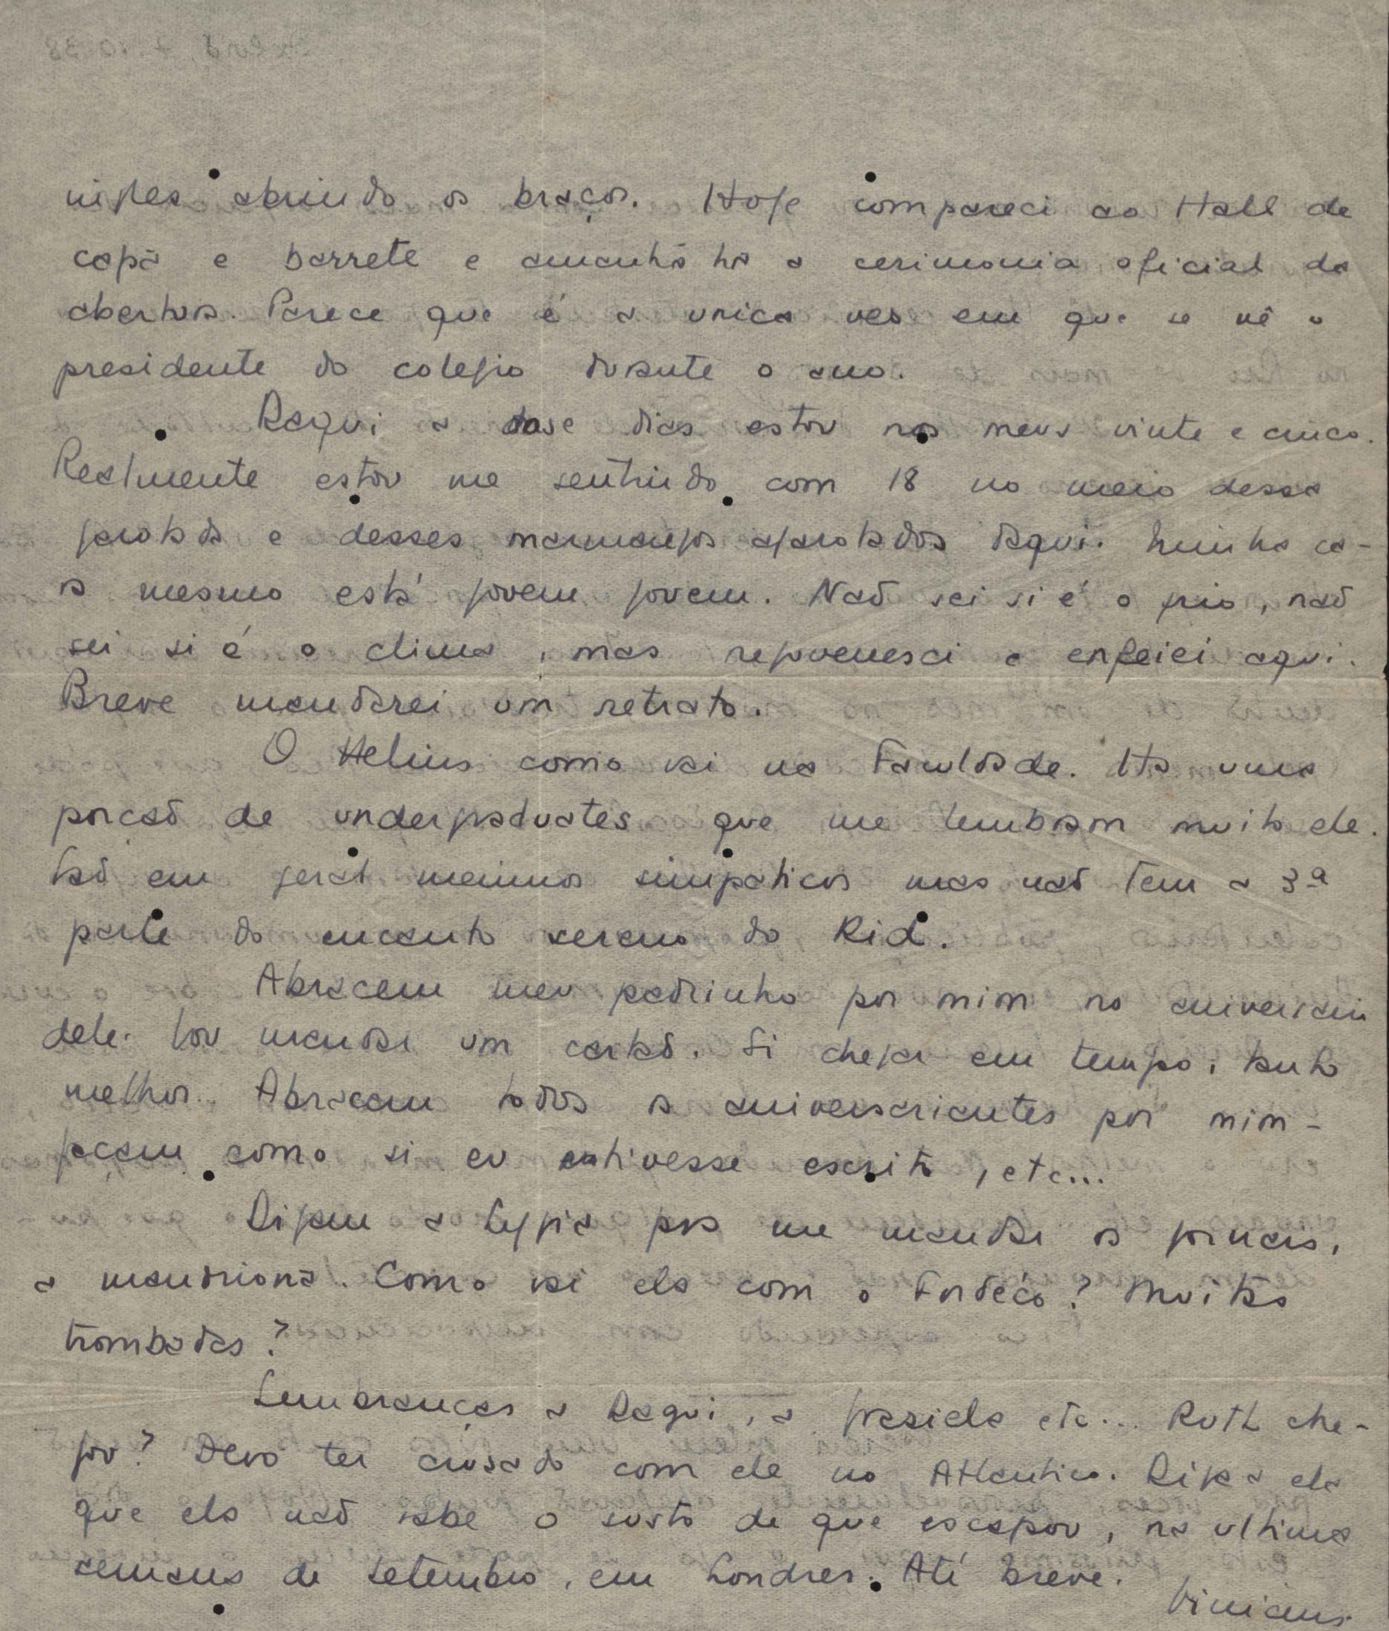 abrindo os braços. Hoje compareci ao Hall de
capa e barrete e amanhã ha a cerimonia oficial da
abertura. Parece que é a unica vez em que se vê o
presidente do colegio durante o ano.
Daqui a dose dias estou nos meus vinte e cinco.
Realmente estou me sentindo com 18 no meio dessa
garotada e desses marmanjos agarotados daqui. Minha ca-
ra mesmo está jovem jovem. Naõ sei si é o frio, naõ
sei si é o clima, mas rejuvenesci e enfeiei aqui.
Breve mandarei um retrato.
O Helius como vai na Faculdade. Ha uma
porçaõ de undergraduates que me lembram muito ele.
Saõ em geral meninos simpaticos mas naõ tem a 3ª
parte do encanto sereno do Rid.
Abracem meu padrinho por mim no aniversario
dele. Vou mandar um cartaõ. Si chegar em tempo, tanto
melhor. Abracem todos os aniversariantes por mim -
façam como si eu estivesse escrito, etc...
Digam a Lygia pra me mandar os jornais,
a mandriona. Como vai ela com o Fordéco? Muitas
trombadas?
Lembranças a Daqui, a Graziela etc... Ruth che-
gou? Devo ter crusado com ele no Atlantico. Diga a ela
que ela naõ sabe o susto de que escapou, na ultima
semana de setembro, em Londres. Até breve.
Vinicius.